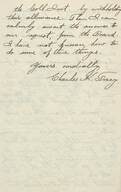 the Gold Dust by withholding
this allowance. Then I can
calmly await the answer to
our request, from the Board.
I have not forgiven how to
do some of these things.
Yours cordially
Charles H. Tracy